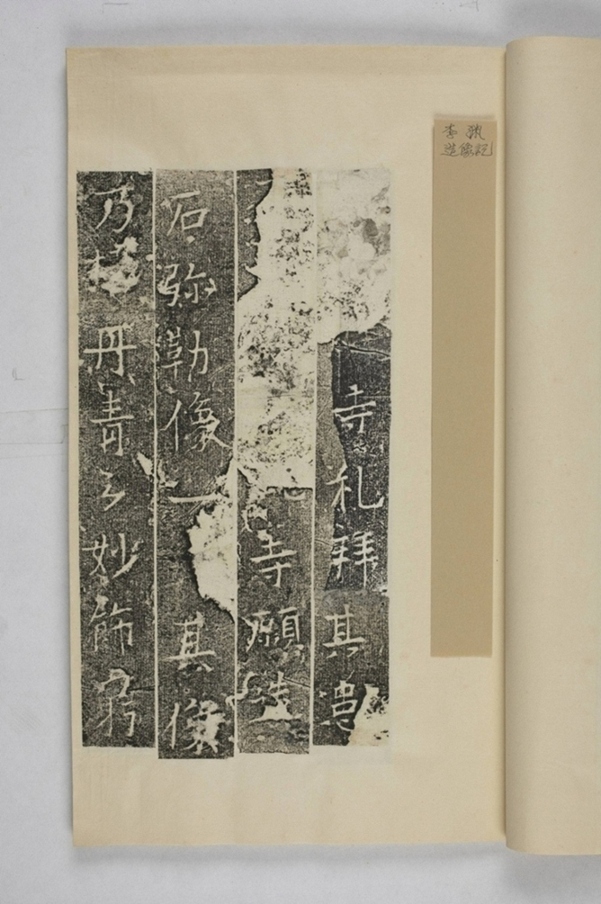 李
造像記
寺礼拜其
寺願造
石弥勒像一其像
乃 丹青之妙飾窮